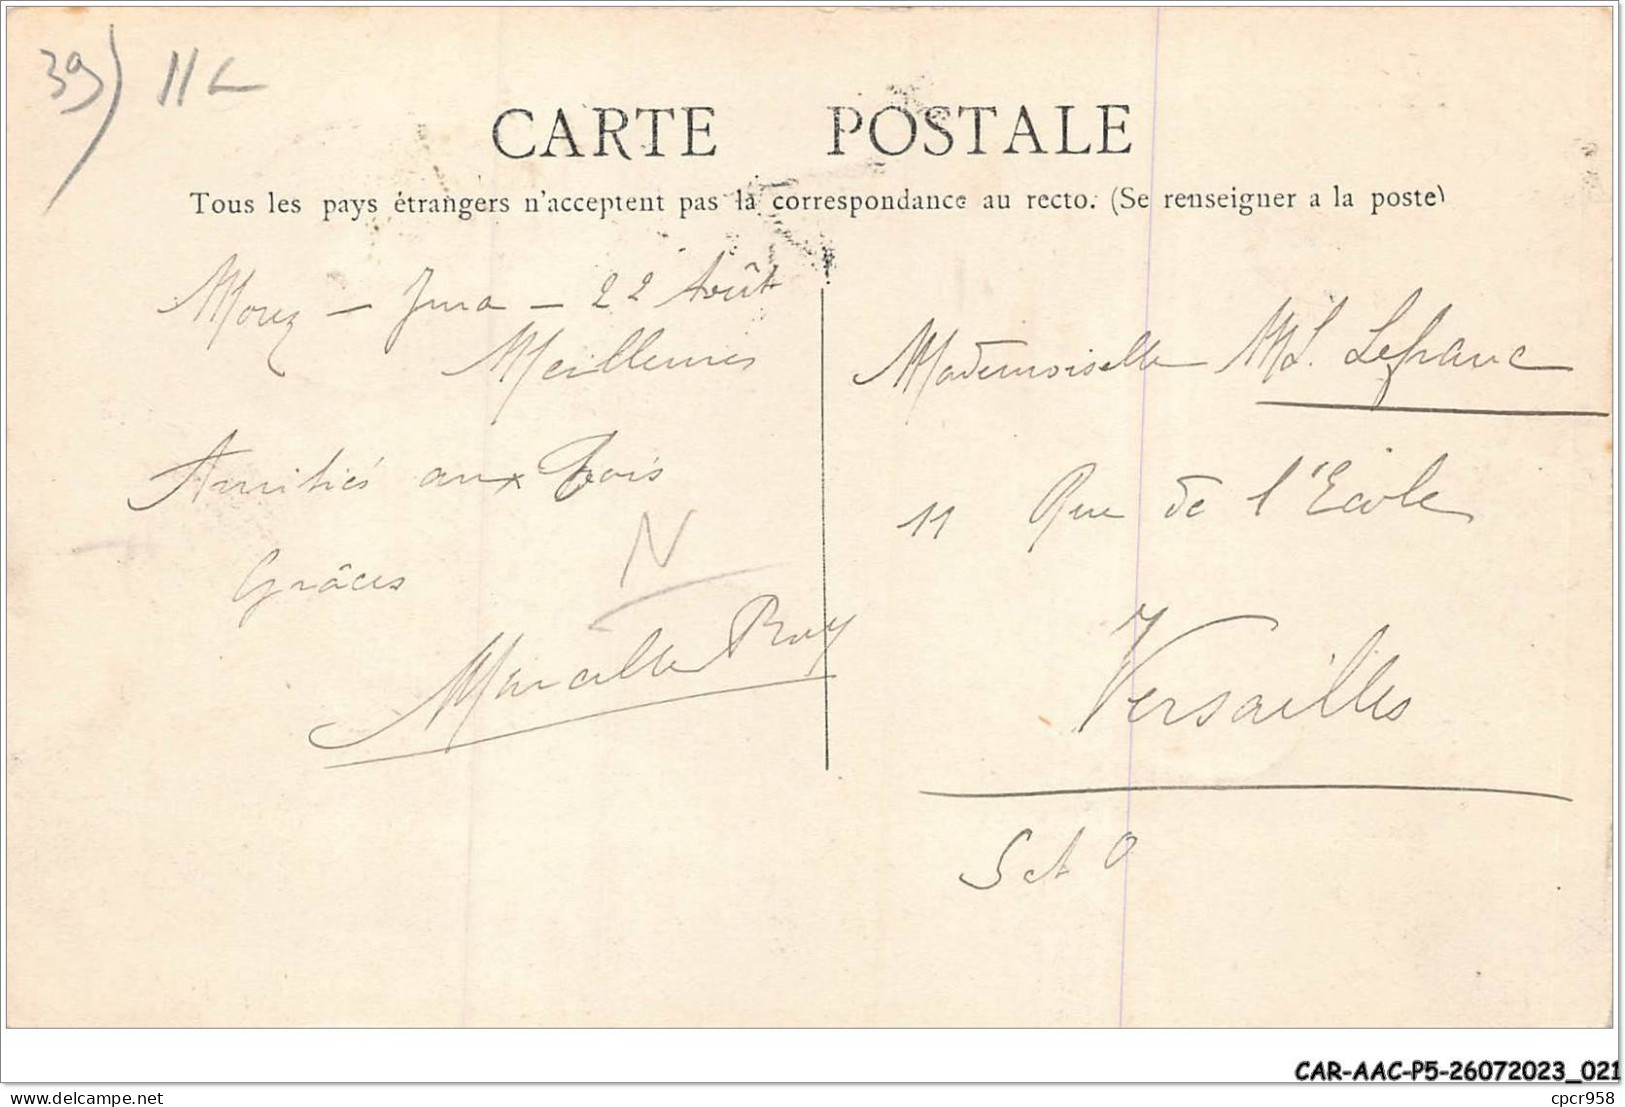 39) 11L
CARTE POSTALE
Tous les pays étrangers n'acceptent pas la correspondance au recto. (Se renseigner a la poste)
Morez - Jura - 22 Août
Meilleures
Amitiés aux trois
Grâces
N
Marcelle Roy
Mademoiselle ML. Lefranc
11 Rue de l'Ecole
Versailles
S et O
CAR-AAC-P5-26072023_021
delcampe.net
cpcr958